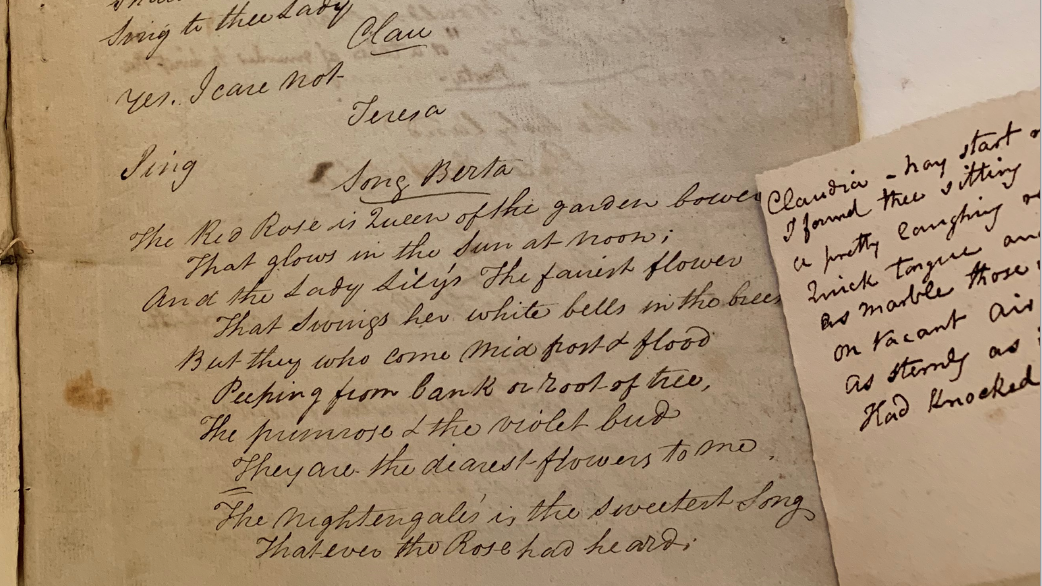 Sing to thee Lady
Clau
Yes. I care not
Teresa
Sing
Song Berta
The Red Rose is Queen of the garden bower
That glows in the Sun at noon;
And the Lady Lily's The fairest flower
That Swings her white bells in the breez
But they who come mid frost & flood
Peeping from bank or root of tree,
The primrose & the violet bud
They are the dearest flowers to me.
The Nightengale's is the sweetest Song
That ever the Rose had heard;
Claudia - nay start
I found thee sitting
a pretty laughing
Quick tongue an
As marble those
on vacant air
as sternly as
Had knocked